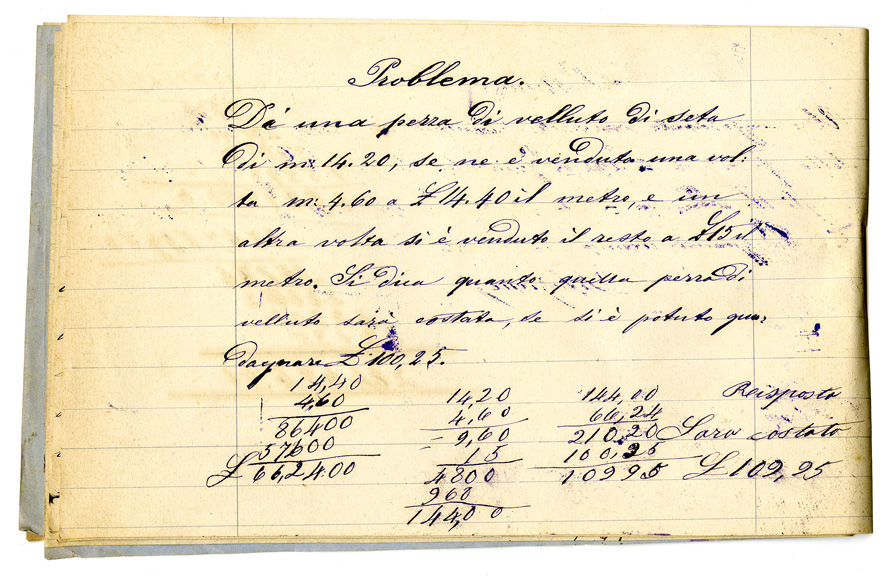 Problema.
Di una pezza di velluto di seta
di m: 14.20, se ne è venduta una vol:
ta m: 4.60 a £ 14.40 il metro, e un
altra volta si è venduto il resto a £ 15 il
metro. Si dica quanto quella pezza di
velluto sarà costata, se si è potuto gua:
dagnare £ 100,25.
14,40 1420 144,00 Reisposta
4,60 4,60 66,24
86400 9,60 210,20 Sara costato
57600 15 100,25
£ 66,2400 4800 10995 £ 109,95
960
144,00